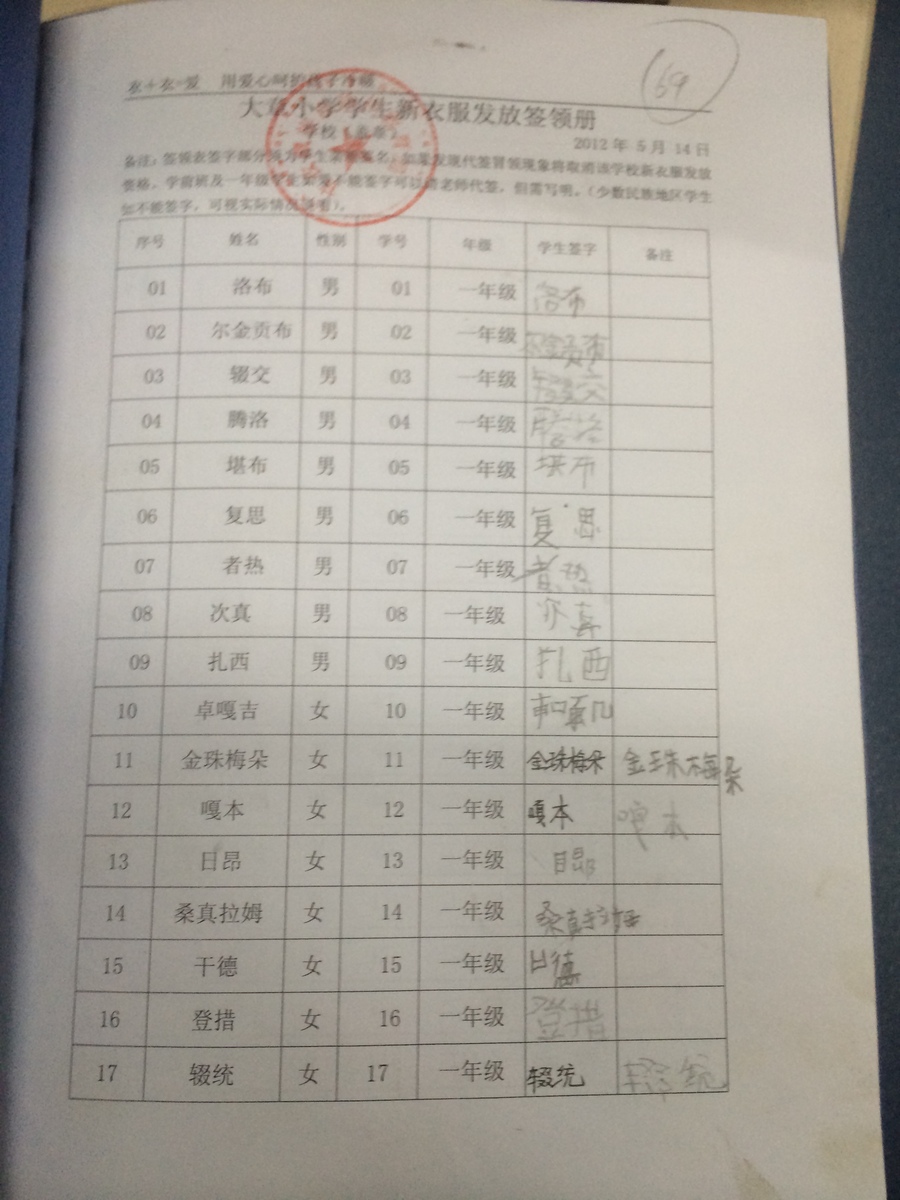 衣+衣=爱 用爱心呵护孩子冷暖
69
大草小学学生新衣服发放签领册
学校(盖章)
2012 年 5 月 14 日
备注:签领表签字部分须为学生亲笔签名,如果发现代签冒领现象将取消该学校新衣服发放
资格,学前班及一年级学生如果不能签字可以请老师代签,但需写明。(少数民族地区学生
如不能签字,可视实际情况
序号 姓名 性别 学号 年级 学生签字 备注
01 洛布 男 01 一年级 洛布
02 尔金贡布 男 02 一年级 尔金贡布
03 辍交 男 03 一年级 辍交
04 腾洛 男 04 一年级 腾洛
05 堪布 男 05 一年级 堪布
06 复思 男 06 一年级 复思
07 者热 男 07 一年级 者热
08 次真 男 08 一年级 次真
09 扎西 男 09 一年级 扎西
10 卓嘎吉 女 10 一年级
11 金珠梅朵 女 11 一年级 金珠梅朵 金珠梅朵
12 嘎本 女 12 一年级 嘎本 嘎本
13 日昂 女 13 一年级 日昂
14 桑真拉姆 女 14 一年级 桑真拉姆
15 干德 女 15 一年级
16 登措 女 16 一年级 登措
17 辍统 女 17 一年级 辍统 辍统